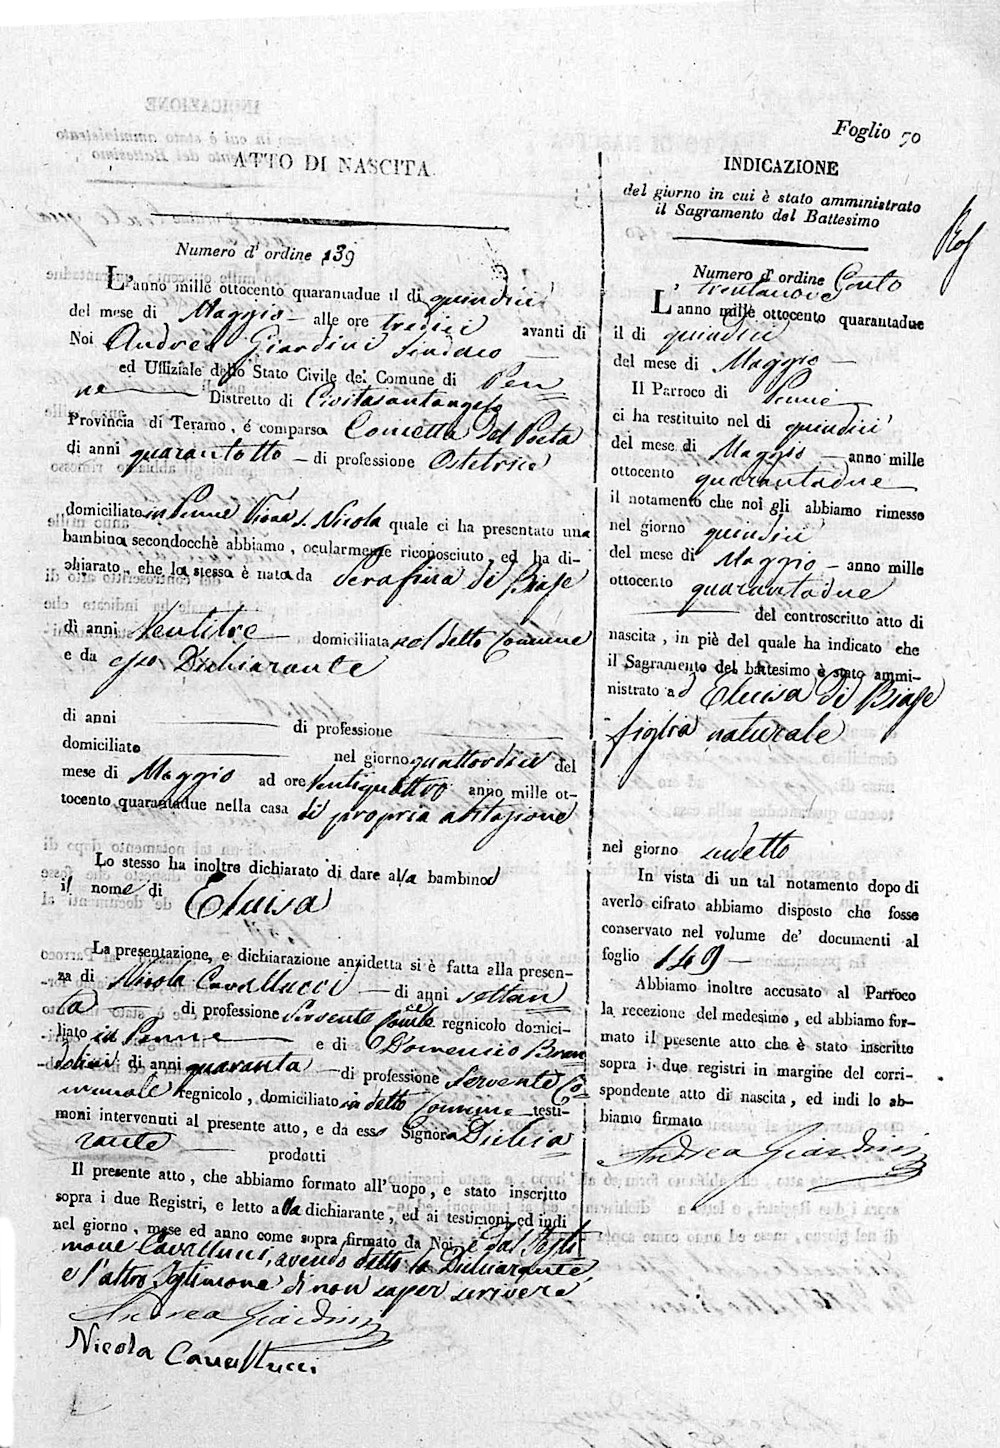 Foglio 70
ATTO DI NASCITA.
Numero d'ordine 139
L'anno mille ottocento quarantadue il di quindici
del mese di Maggio — alle ore tredici avanti di
Noi Andrea Giardini Sindaco
ed Uffiziale dello Stato Civile de' Comune di Pen
ne Distretto di Civitasantangelo
Provincia di Teramo, é comparsa Cometta del Poeta
di anni quarantotto — di professione Ostetrice
domiciliato in Penne S. Nicola quale ci ha presentato una
bambina secondocchè abbiamo, ocularmente riconosciuto, ed ha di-
chiarato, che la stessa è nata da Serafina di Biase
di anni Ventitre domiciliata nel detto Comune
e da essa Dichiarante
di anni — di professione —
domiciliato — nel giorno quattordici del
mese di Maggio ad ore Ventiquattro anno mille ot-
tocento quarantadue nella casa di propria abitazione
Lo stesso ha inoltre dichiarato di dare alla bambina
il nome di Eluisa
La presentazione, e dichiarazione anzidetta si è fatta alla presen-
za di Nicola Cavallucci — di anni settan
ta di professione Servente regnicolo domici-
liato in Penne e di Domenico Bran
dolini di anni quaranta — di professione Servente Co-
munale regnicolo, domiciliato in detto Comune testi-
moni intervenuti al presente atto, e da essa Signora Dichia
rante — prodotti
Il presente atto, che abbiamo formato all'uopo, e stato inscritto
sopra i due Registri, e letto alla dichiarante, ed ai testimoni ed indi
nel giorno, mese ed anno come sopra firmato da Noi e dal Testi
mone Cavallucci, avendo detto la Dichiarante,
e l'altro Testimone di non saper scrivere
Andrea Giardini
Nicola Cavallucci
INDICAZIONE
del giorno in cui è stato amministrato
il Sagramento del Battesimo
Numero d'ordine Cento
trentanove
L'anno mille ottocento quarantadue
il di quindici
del mese di Maggio —
Il Parroco di Penne
ci ha restituito nel di quindici
del mese di Maggio — anno mille
ottocento quarantadue
il notamento che noi gli abbiamo rimesso
nel giorno quindici
del mese di Maggio — anno mille
ottocento quarantadue
del controscritto atto di
nascita, in piè del quale ha indicato che
il Sagramento del battesimo è stato ammi-
nistrato ad Eluisa di Biase
figlia naturale
nel giorno sudetto
In vista di un tal notamento dopo di
averlo cifrato abbiamo disposto che fosse
conservato nel volume de' documenti al
foglio 149 —
Abbiamo inoltre accusato al Parroco
la recezione del medesimo, ed abbiamo for-
mato il presente atto che è stato inscritto
sopra i due registri in margine del corri-
spondente atto di nascita, ed indi lo ab-
biamo firmato
Andrea Giardini